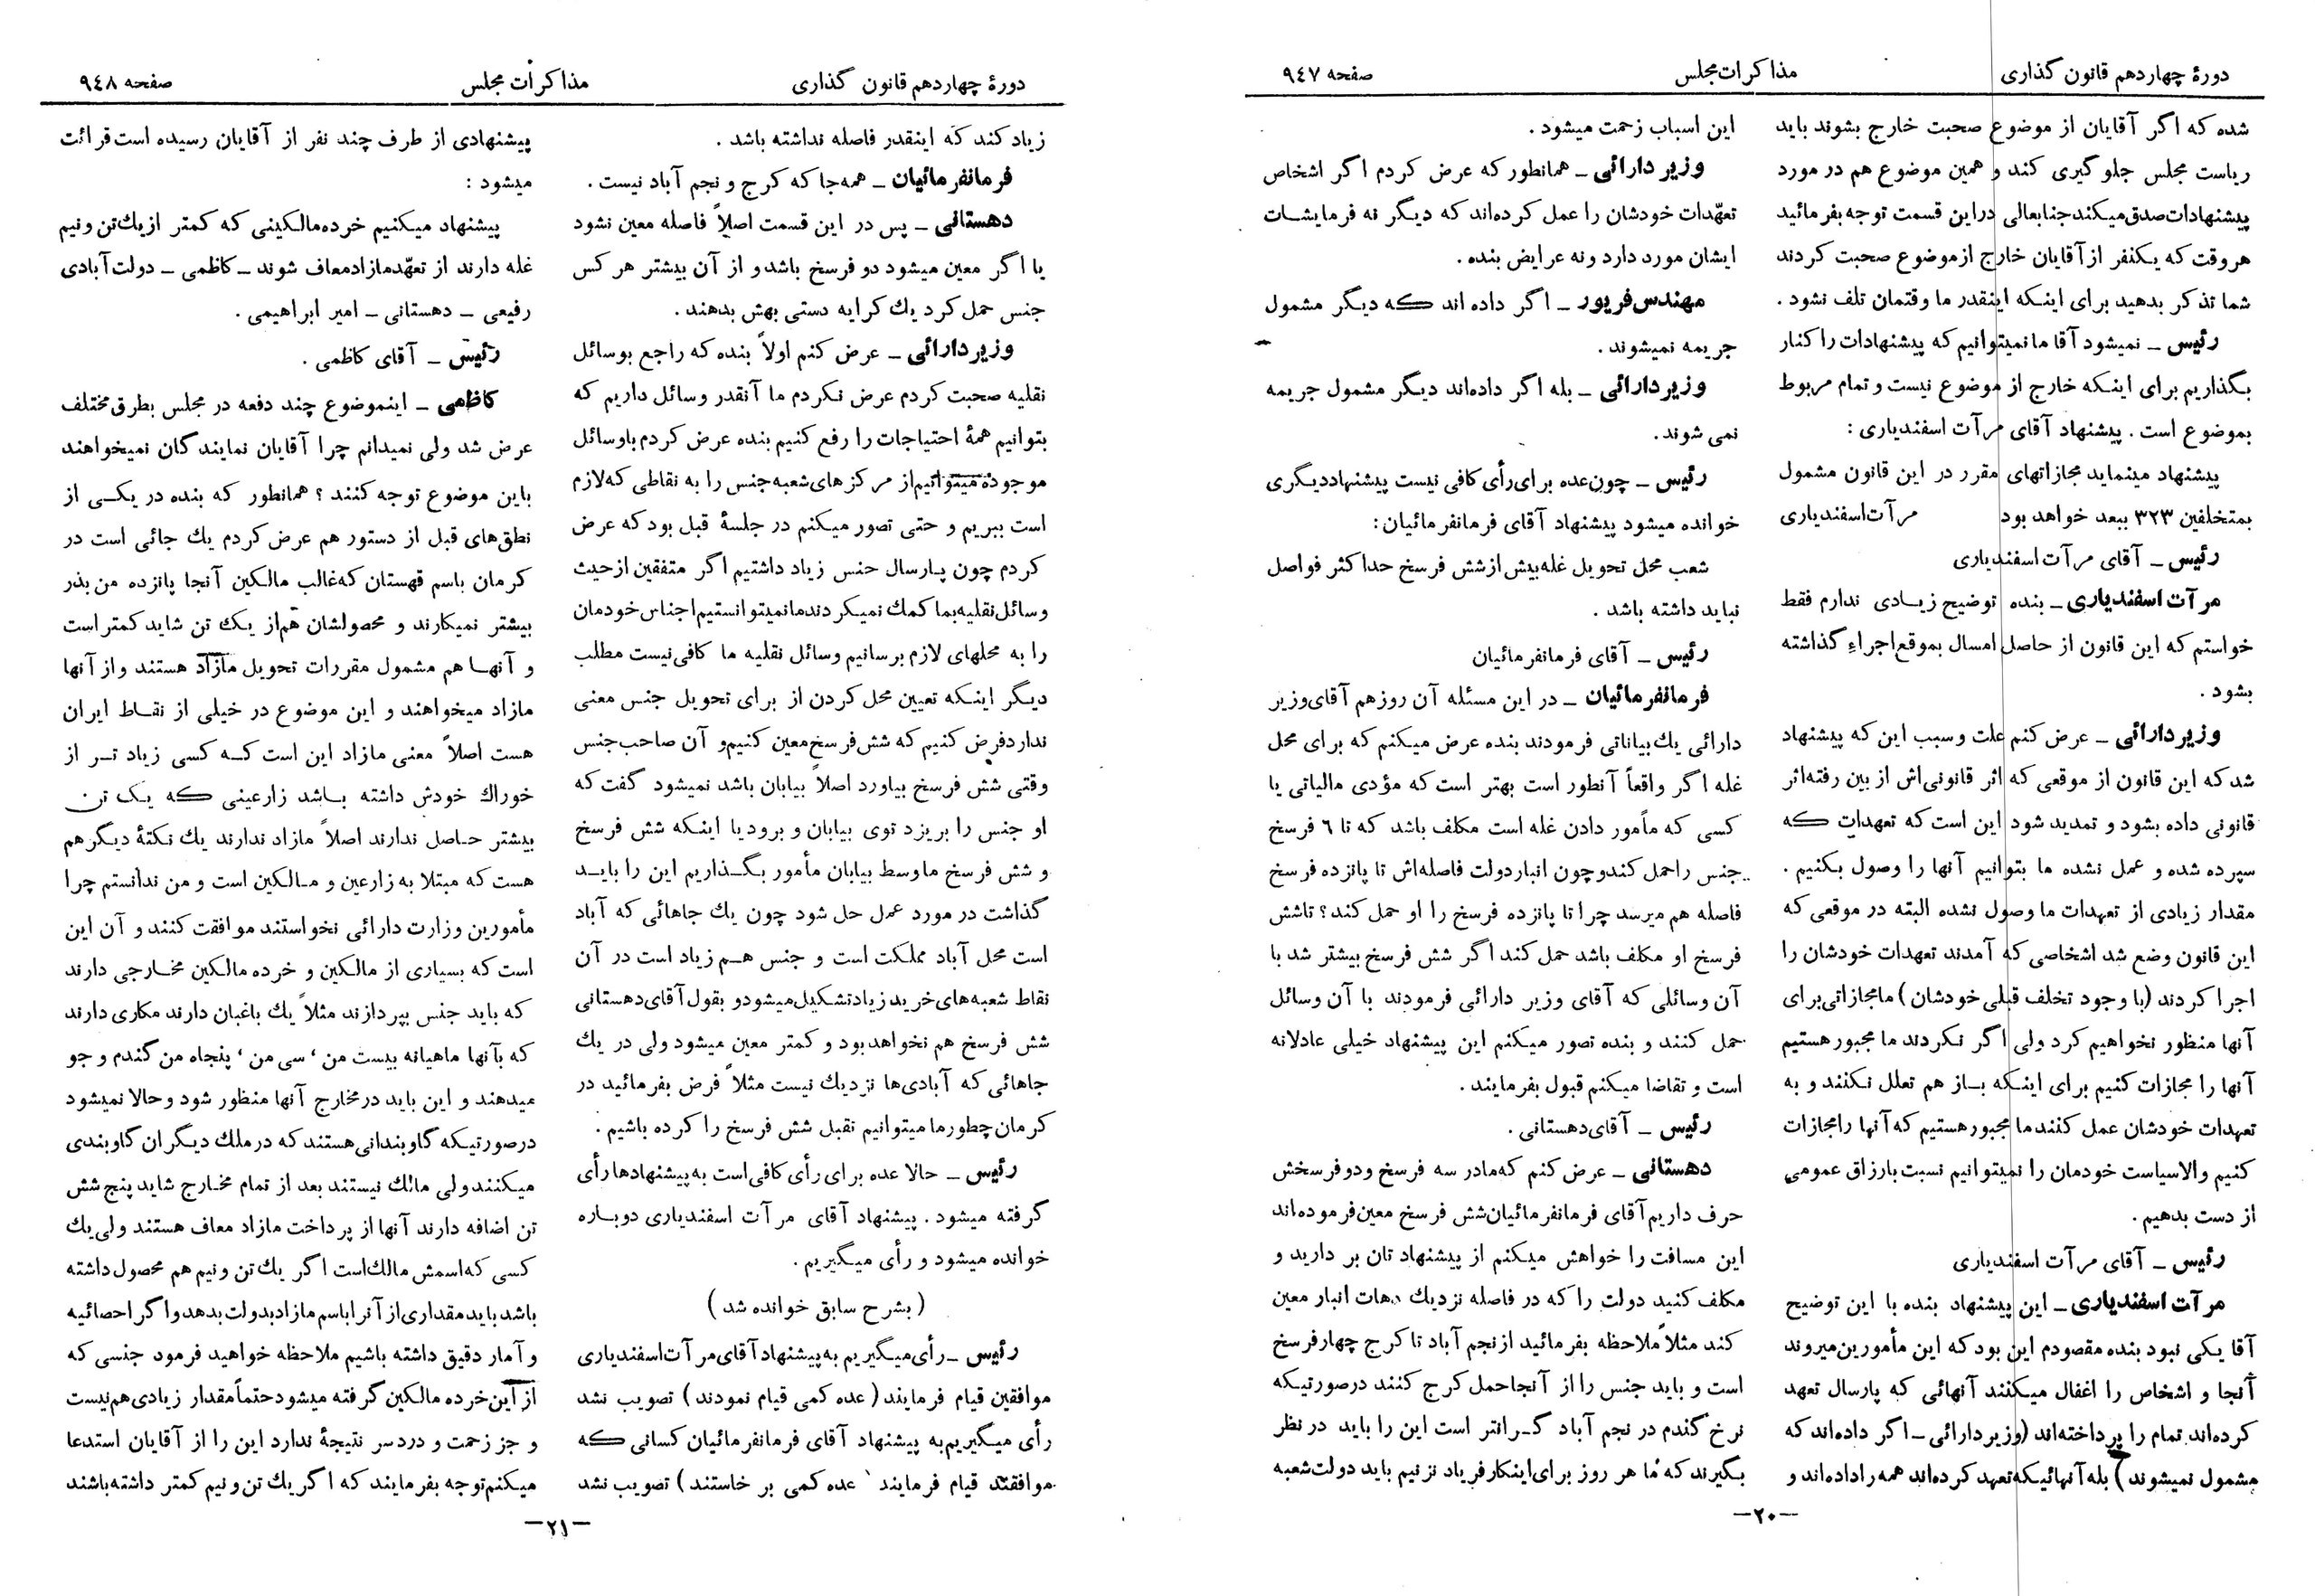 دورهٔ چهاردهم قانون گذاری
مذاکرات مجلس
صفحه ۹٤۷
شده که اگر آقایان از موضوع صحبت خارج بشوند باید
ریاست مجلس جلوگیری کند و همین موضوع هم در مورد
پیشنهادات صدق میکند جنابعالی دراین قسمت توجه بفرمائید
هروقت که یکنفر از آقایان خارج ازموضوع صحبت کردند
شما تذکر بدهید برای اینکه اینقدر ما وقتمان تلف نشود .
رئیس ــ نمیشود آقا ما نمیتوانیم که پیشنهادات را کنار
بگذاریم برای اینکه خارج از موضوع نیست و تمام مربوط
بموضوع است . پیشنهاد آقای مرآت اسفندیاری :
پیشنهاد مینماید مجازاتهای مقرر در این قانون مشمول
بمتخلفین ۳۲۳ ببعد خواهد بود مرآت اسفندیاری
رئیس ــ آقای مرآت اسفندیاری
مرآت اسفندیاری ــ بنده توضیح زیادی ندارم فقط
خواستم که این قانون از حاصل امسال بموقع اجراء گذاشته
بشود .
وزیر دارائی ــ عرض کنم علت و سبب این که پیشنهاد
شد که این قانون از موقعی که اثر قانونی‌اش از بین رفته اثر
قانونی داده بشود و تمدید شود این است که تعهدات که
سپرده شده و عمل نشده ما بتوانیم آنها را وصول بکنیم .
مقدار زیادی از تعهدات ما وصول نشده البته در موقعی که
این قانون وضع شد اشخاصی که آمدند تعهدات خودشان را
اجرا کردند (با وجود تخلف قبلی خودشان) ما مجازاتی برای
آنها منظور نخواهیم کرد ولی اگر نکردند ما مجبور هستیم
آنها را مجازات کنیم برای اینکه باز هم تعلل نکنند و به
تعهدات خودشان عمل کنند ما مجبور هستیم که آنها را مجازات
کنیم والا سیاست خودمان را نمیتوانیم نسبت بارزاق عمومی
از دست بدهیم .
رئیس ــ آقای مرآت اسفندیاری
مرآت اسفندیاری ــ این پیشنهاد بنده با این توضیح
آقا یکی نبود بنده مقصودم این بود که این مأمورین میروند
آنجا و اشخاص را اغفال میکنند آنهائی که پارسال تعهد
کرده‌اند تمام را پرداخته‌اند (وزیر دارائی ــ اگر داده‌اند که
مشمول نمیشوند) بله آنهائیکه تعهد کرده‌اند همه را داده‌اند و
این اسباب زحمت میشود .
وزیر دارائی ــ همانطور که عرض کردم اگر اشخاص
تعهّدات خودشان را عمل کرده‌اند که دیگر نه فرمایشات
ایشان مورد دارد و نه عرایض بنده .
مهندس فریور ــ اگر داده اند که دیگر مشمول
جریمه نمیشوند .
وزیر دارائی ــ بله اگر داده‌اند دیگر مشمول جریمه
نمی شوند .
رئیس ــ چون عده برای رأی کافی نیست پیشنهاد دیگری
خوانده میشود پیشنهاد آقای فرمانفرمائیان :
شعب محل تحویل غله بیش از شش فرسخ حداکثر فواصل
نباید داشته باشد .
رئیس ــ آقای فرمانفرمائیان
فرمانفرمائیان ــ در این مسئله آن روز هم آقای وزیر
دارائی یك بیاناتی فرمودند بنده عرض میکنم که برای محل
غله اگر واقعاً آنطور است بهتر است که مؤدی مالیاتی یا
کسی که مأمور دادن غله است مکلف باشد که تا ٦ فرسخ
جنس را حمل کند و چون انبار دولت فاصله‌اش تا پانزده فرسخ
فاصله هم میرسد چرا تا پانزده فرسخ را او حمل کند ؟ تا شش
فرسخ او مکلف باشد حمل کند اگر شش فرسخ بیشتر شد با
آن وسائلی که آقای وزیر دارائی فرمودند با آن وسائل
حمل کنند و بنده تصور میکنم این پیشنهاد خیلی عادلانه
است و تقاضا میکنم قبول بفرمایند .
رئیس ــ آقای دهستانی .
دهستانی ــ عرض کنم که ما در سه فرسخ و دو فرسخش
حرف داریم آقای فرمانفرمائیان شش فرسخ معین فرموده‌اند
این مسافت را خواهش میکنم از پیشنهاد تان بر دارید و
مکلف کنید دولت را که در فاصله نزدیك دهات انبار معین
کند مثلاً ملاحظه بفرمائید از نجم آباد تا کرج چهار فرسخ
است و باید جنس را از آنجا حمل کرج کنند درصورتیکه
نرخ گندم در نجم آباد گرانتر است این را باید در نظر
بگیرند که ما هر روز برای اینکار فریاد نزنیم باید دولت شعبه
ــ ۲۰ ــ
دورهٔ چهاردهم قانون گذاری
مذاکرات مجلس
صفحه ۹٤۸
زیاد کند که اینقدر فاصله نداشته باشد .
فرمانفرمائیان ــ همه جا که کرج و نجم آباد نیست .
دهستانی ــ پس در این قسمت اصلاً فاصله معین نشود
یا اگر معین میشود دو فرسخ باشد و از آن بیشتر هر کس
جنس حمل کرد یك کرایه دستی بهش بدهند .
وزیر دارائی ــ عرض کنم اولاً بنده که راجع بوسائل
نقلیه صحبت کردم عرض نکردم ما آنقدر وسائل داریم که
بتوانیم همهٔ احتیاجات را رفع کنیم بنده عرض کردم باوسائل
موجوده میتوانیم از مرکزهای شعبه جنس را به نقاطی که لازم
است ببریم و حتی تصور میکنم در جلسهٔ قبل بود که عرض
کردم چون پارسال جنس زیاد داشتیم اگر متفقین از حیث
وسائل نقلیه بما کمك نمیکردند ما نمیتوانستیم اجناس خودمان
را به محلهای لازم برسانیم وسائل نقلیه ما کافی نیست مطلب
دیگر اینکه تعیین محل کردن از برای تحویل جنس معنی
ندارد فرض کنیم که شش فرسخ معین کنیم و آن صاحب جنس
وقتی شش فرسخ بیاورد اصلاً بیابان باشد نمیشود گفت که
او جنس را بریزد توی بیابان و برود یا اینکه شش فرسخ
و شش فرسخ ما وسط بیابان مأمور بگذاریم این را باید
گذاشت در مورد عمل حل شود چون یك جاهائی که آباد
است محل آباد مملکت است و جنس هم زیاد است در آن
نقاط شعبه‌های خرید زیاد تشکیل میشود و بقول آقای دهستانی
شش فرسخ هم نخواهد بود و کمتر معین میشود ولی در یك
جاهائی که آبادی‌ها نزدیك نیست مثلاً فرض بفرمائید در
کرمان چطور ما میتوانیم تقبل شش فرسخ را کرده باشیم .
رئیس ــ حالا عده برای رأی کافی است به پیشنهادها رأی
گرفته میشود . پیشنهاد آقای مرآت اسفندیاری دوباره
خوانده میشود و رأی میگیریم .
( بشرح سابق خوانده شد )
رئیس ــ رأی میگیریم به پیشنهاد آقای مرآت اسفندیاری
موافقین قیام فرمایند ( عده کمی قیام نمودند ) تصویب نشد
رأی میگیریم به پیشنهاد آقای فرمانفرمائیان کسانی که
موافقند قیام فرمایند ( عده کمی بر خاستند ) تصویب نشد
پیشنهادی از طرف چند نفر از آقایان رسیده است قرائت
میشود :
پیشنهاد میکنیم خرده مالکینی که کمتر از یك تن و نیم
غله دارند از تعهّد مازاد معاف شوند ــ کاظمی ــ دولت آبادی
رفیعی ــ دهستانی ــ امیر ابراهیمی .
رئیس ــ آقای کاظمی .
کاظمی ــ اینموضوع چند دفعه در مجلس بطرق مختلف
عرض شد ولی نمیدانم چرا آقایان نمایندگان نمیخواهند
باین موضوع توجه کنند ؟ همانطور که بنده در یکی از
نطق‌های قبل از دستور هم عرض کردم یك جائی است در
کرمان باسم قهستان که غالب مالکین آنجا پانزده من بذر
بیشتر نمیکارند و محصولشان هم از یک تن شاید کمتر است
و آنها هم مشمول مقررات تحویل مازاد هستند و از آنها
مازاد میخواهند و این موضوع در خیلی از نقاط ایران
هست اصلاً معنی مازاد این است که کسی زیاد تر از
خوراك خودش داشته باشد زارعینی که یک تن
بیشتر حاصل ندارند اصلاً مازاد ندارند یك نکتهٔ دیگر هم
هست که مبتلا به زارعین و مالکین است و من ندانستم چرا
مأمورین وزارت دارائی نخواستند موافقت کنند و آن این
است که بسیاری از مالکین و خرده مالکین مخارجی دارند
که باید جنس بپردازند مثلاً یك باغبان دارند مکاری دارند
که بآنها ماهیانه بیست من ، سی من ، پنجاه من گندم و جو
میدهند و این باید در مخارج آنها منظور شود و حالا نمیشود
درصورتیکه گاوبندانی هستند که در ملك دیگران گاوبندی
میکنند ولی مالك نیستند بعد از تمام مخارج شاید پنج شش
تن اضافه دارند آنها از پرداخت مازاد معاف هستند ولی یك
کسی که اسمش مالك است اگر یك تن و نیم هم محصول داشته
باشد باید مقداری از آنرا باسم مازاد بدولت بدهد و اگر احصائیه
و آمار دقیق داشته باشیم ملاحظه خواهید فرمود جنسی که
از این خرده مالکین گرفته میشود حتماً مقدار زیادی هم نیست
و جز زحمت و دردسر نتیجهٔ ندارد این را از آقایان استدعا
میکنم توجه بفرمایند که اگر یك تن و نیم کمتر داشته باشند
ــ ۲۱ ــ